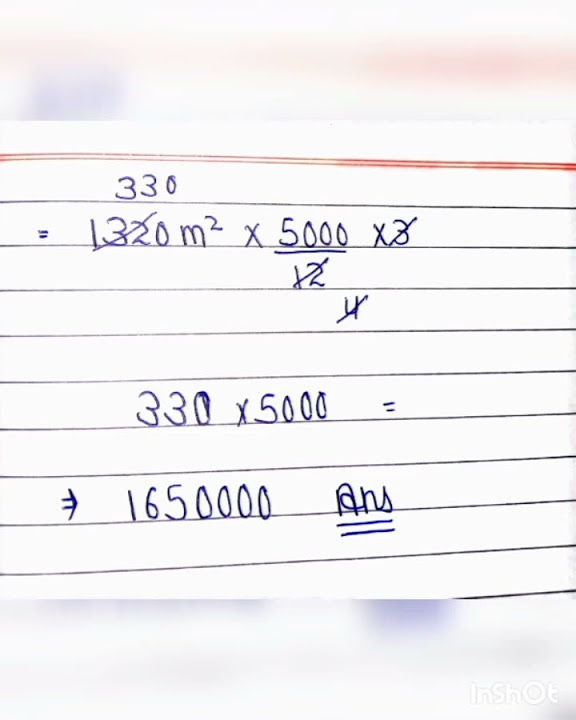 330
= 1320 m² × 5000 × 3
12
4
330 × 5000 =
⇒ 1650000 Ans
InShOt